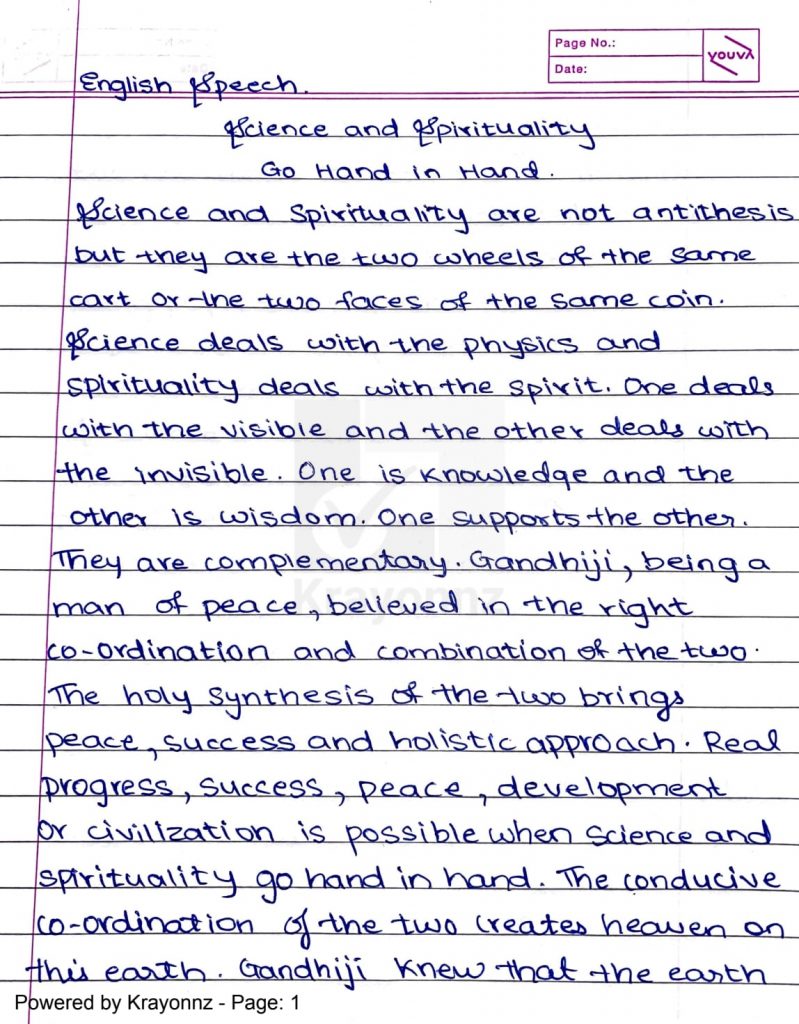 Page No.:
youva
Date:
English Speech.
Science and Spirituality
Go Hand in Hand.
Science and Spirituality are not antithesis
but they are the two wheels of the same
cart or the two faces of the same coin.
Science deals with the physics and
spirituality deals with the spirit. One deals
with the visible and the other deals with
the invisible. One is knowledge and the
other is wisdom. One supports the other.
They are complementary. Gandhiji, being a
man of peace, believed in the right
co-ordination and combination of the two.
The holy synthesis of the two brings
peace, success and holistic approach. Real
progress, success, peace, development
or civilization is possible when science and
spirituality go hand in hand. The conducive
co-ordination of the two creates heaven on
this earth. Gandhiji knew that the earth
Krayonnz
Powered by Krayonnz - Page: 1